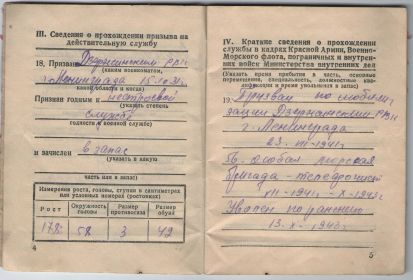 III. Сведения о прохождении призыва на
действительную службу
18. Призван Дзержинским РВК
(каким военкоматом,
г. Ленинграда 15.10.31.
какой области и когда)
Признан годным к нестроевой
(указать степень
службе
годности к военной службе)
и зачислен в запас
(указать в какую
часть или в запас)
Измерения роста, головы, ступни в сантиметрах
или условных номерах (ростовках)
Рост
Окружность головы
Размер противогаза
Размер обуви
178
58
3
42
4
IV. Краткие сведения о прохождении
службы в кадрах Красной Армии, Военно-
Морского флота, пограничных и внутрен-
них войск Министерства внутренних дел
(Указать время прибытия в часть, основные
перемещения, специальность, должностные ква-
лификации и время увольнения в запас)
19. Призван по мобили-
зации Дзержинским РВК
г. Ленинграда
23. VII-1941г.
56. Особая морская
бригада-
VII-1941г. - X-1943г.
Уволен по ранению
13. X-1943г.
5